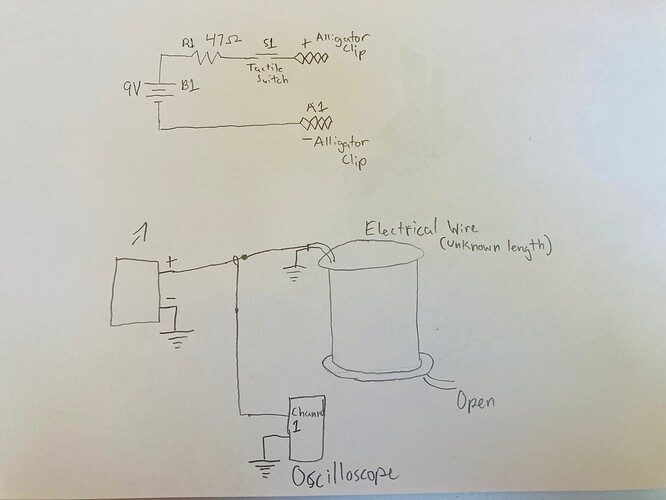 R1 47Ω
S1
+ Alligator
Clip
Tactile
Switch
9V B1
A1
- Alligator
Clip
1
Electrical Wire
(unknown length)
+
-
Open
Channel
1
Oscilloscope